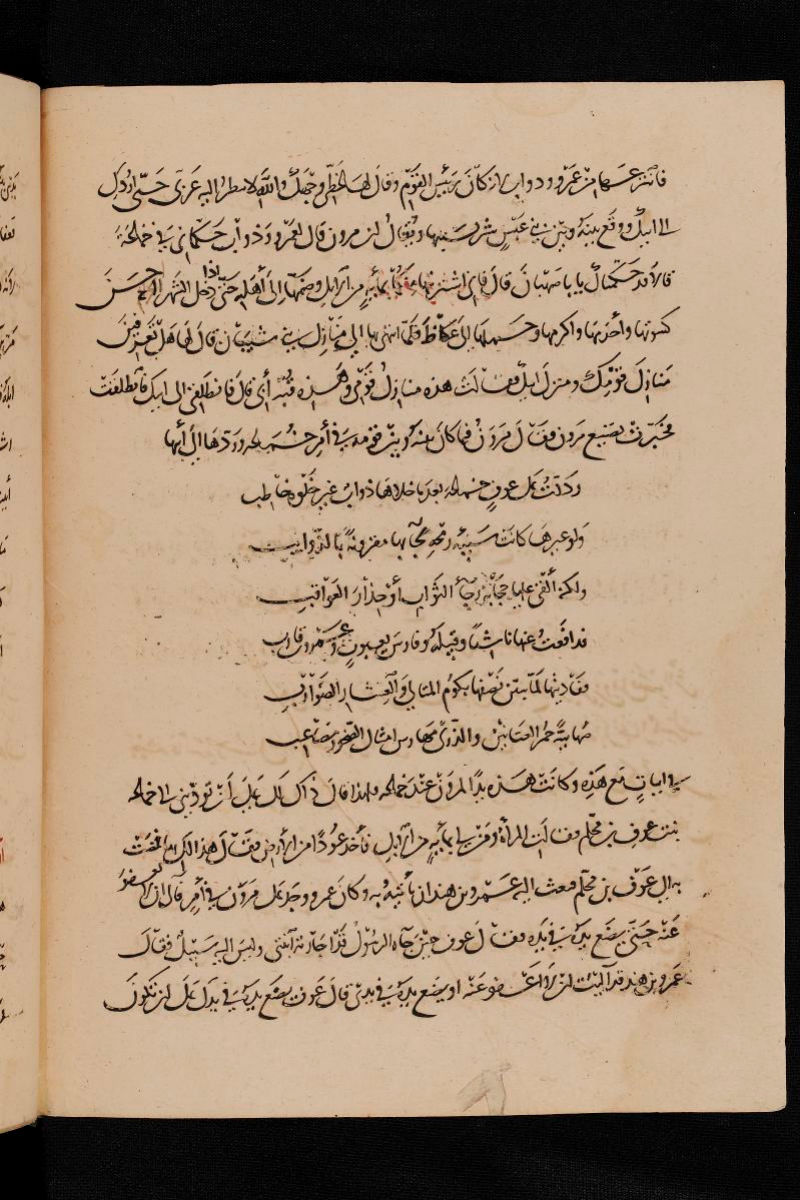 فانتزعها من عمرو وذواب لانه كان رئيس القوم وقال لها غطي وجهك والله لا ينظر اليه عربي حتى اردك
الى ابيك ووقع بينه وبين بني عبس شر بسببها ويقال ان مروان قال لعمرو وذواب حكماني في خماعة
قالا قد حكمناك يا با صهبان قال فاني اشتريتها منكما بمائة من الابل وضمها الى أهله حتى اذا دخل الشهر الحرام احسن
كسوتها وأخدمها واكرمها وحملها الى عكاظ فلما انتهى بها الى منازل بني شيبان قال لها هل تعرفين
منازل قومك ومنزل ابيك فقالت هذه منازل قومي وهذه قبة أبي قال فانطلقي الى ابيك فانطلقت
فخبرت بصنيع مروان فقال مروان فيما كان بينه وبين قومه في أمر خماعة وردها الى أبيها
رددت على عوف خماعة بعد ما خلاها ذواب غير خلوة خاطب
ولو غيرها كانت سبيئة رمحه لجآ بها مقرونة بالذوائب
ولكنه ألقى عليها حجابه رجآء الثواب أو حذار العواقب
فدافعت عنها ناشبًا وقبيله وفارس يعبوب وعمرو بن قارب
ففاديتها لما تبين نصفها بكوم المتالي والعشار الضوارب
صهابية حمر العثانين والذرى مهاريس امثال الصخور مصاعب
في ابيات مع هذه وكانت هذه يدًا لمروان عند خماعة ولهذا قال ذاك لك على أن تؤديني الى خماعة
بنت عوف بن محلم وقالت المرأة ومن لي بمائة من الابل فأخذ عودًا من الارض فقال هذا لك بها فمضت
به الى عوف بن محلم فبعث اليه عمرو بن هند ان يأتيه به وكان عمرو وجد على مروان في أمر فآلى ان لا يعفو
عنه حتى يضع يده في يده فقال عوف حين جآه الرسول قد اجارته ابنتي وليس اليه سبيل فقال
عمرو بن هند قد آليت ان لا اعفو عنه او يضع يده في يدي قال عوف يضع يده في يدك على ان تكون